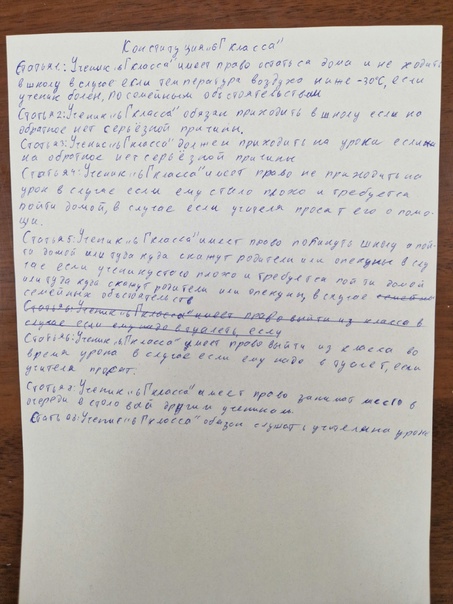 Конституция „6 Г класса"
Статья 1: Ученик „6 Г класса" имеет право остаться дома и не ходить
в школу в случае если температура воздуха ниже -30°C, если
ученик болен, по семейным обстоятельствам
Статья 2: Ученик „6 Г класса" обязан приходить в школу если на
обратное нет серьёзной причины.
Статья 3: Ученик „6 Г класса" должен приходить на уроки если на
на обратное нет серьёзной причины
Статья 4: Ученик „6 Г класса" имеет право не приходить на
урок в случае если ему стало плохо и требуется
пойти домой, в случае если учителя просят его о помо-
щи.
Статья 5: Ученик „6 Г класса" имеет право покинуть школу и пой-
ти домой или туда куда скажут родители или опекуны в слу
чае если ученику стало плохо и требуется пойти домой
или туда куда скажут родители или опекуны, в случае
семейных обстоятельств
Статья 6: Ученик „6 Г класса" имеет право выйти из класса в
случае если ему надо в туалет, если
Статья 6: Ученик „6 Г класса" имеет право выйти из класса во
время урока в случае если ему надо в туалет, если
учителя просят.
Статья 7: Ученик „6 Г класса" имеет право занимать место в
очереди в столовой другим ученикам.
Статья 8: Ученик „6 Г класса" обязан слушать учителя на уроке